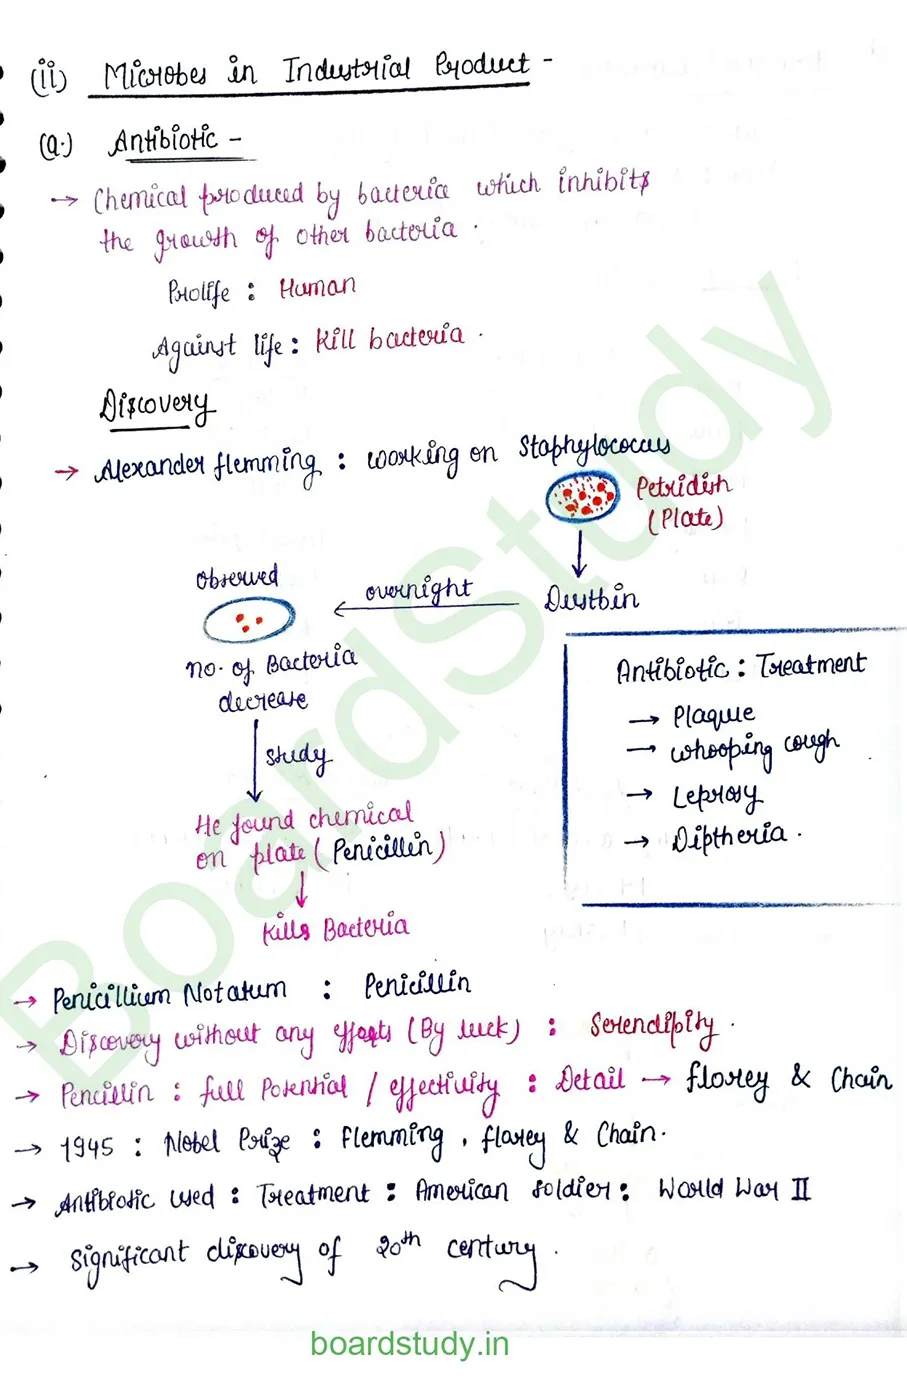 (ii) Microbes in Industrial Product -
(a.) Antibiotic -
→ Chemical produced by bacteria which inhibits
the growth of other bacteria.
Prolife : Human
Against life : Kill bacteria.
Discovery
→ Alexander flemming : working on Staphylococcus
Petridish
(Plate)
Observed
overnight
Dustbin
no. of Bacteria
decrease
study
He found chemical
on plate (Penicillin)
Kills Bacteria
Antibiotic : Treatment
→ Plaque
→ Whooping cough
→ Leprosy
→ Diptheria.
→ Penicillium Notatum : Penicillin
→ Discovery without any effects (By luck) : Serendipity.
→ Pencillin : full Potential / effectivity : Detail → florey & Chain
→ 1945 : Nobel Prize : Flemming, florey & Chain.
→ Antibiotic used : Treatment : American soldier : World War II
→ Significant discovery of 20th century.
BoardStudy
boardstudy.in